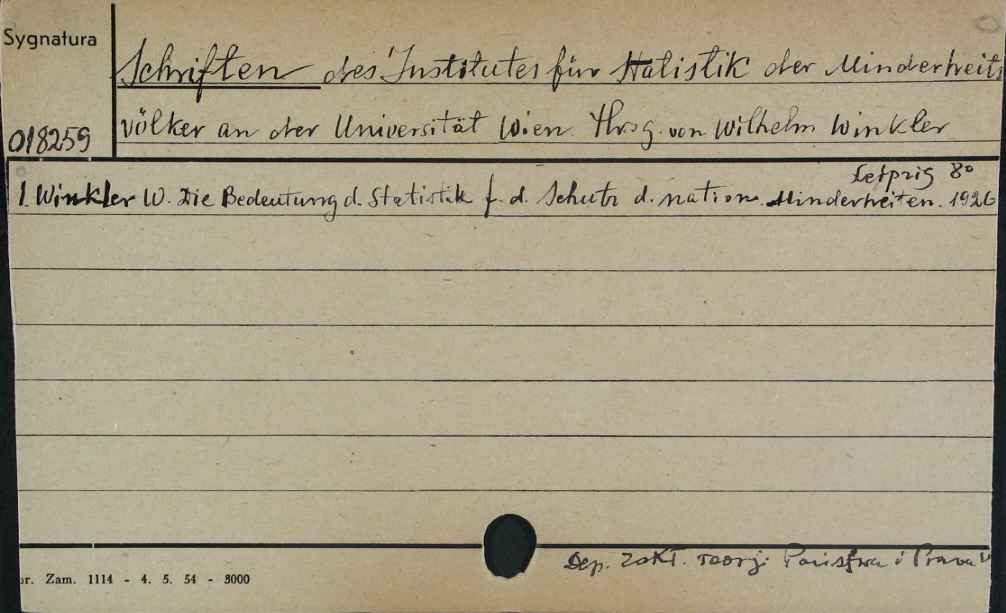 Sygnatura
Schriften des Institutes für Statistik der Minderheits
018259
völker an der Universität Wien. Hrsg. von Wilhelm Winkler
Leipzig 8°
1. Winkler W. Die Bedeutung d. Statistik f. d. Schutz d. nation. Minderheiten. 1926
Dep. Zakł. Teorji Państwa i Prawa
or. Zam. 1114 - 4. 5. 54 - 3000